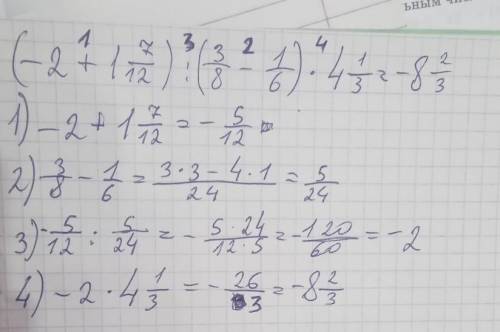 ьным чи
(-2 +¹ 1 7/12) :³ (3/8 -² 1/6) ·⁴ 4 1/3 = -8 2/3
1) -2 + 1 7/12 = - 5/12
2) 3/8 - 1/6 = (3·3 - 4·1)/24 = 5/24
3) - 5/12 : 5/24 = - (5·24)/(12·5) = - 120/60 = -2
4) -2 · 4 1/3 = - 26/3 = -8 2/3